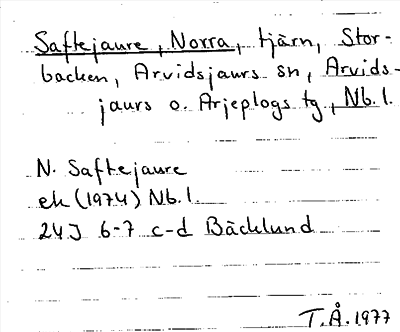 Saftejaure, Norra, tjärn, Stor-
backen, Arvidsjaurs sn, Arvids-
jaurs o. Arjeplogs tg, Nb. l.
N. Saftejaure
ek (1974) Nb. l
24J 6-7 c-d Bäcklund
T.Å. 1977